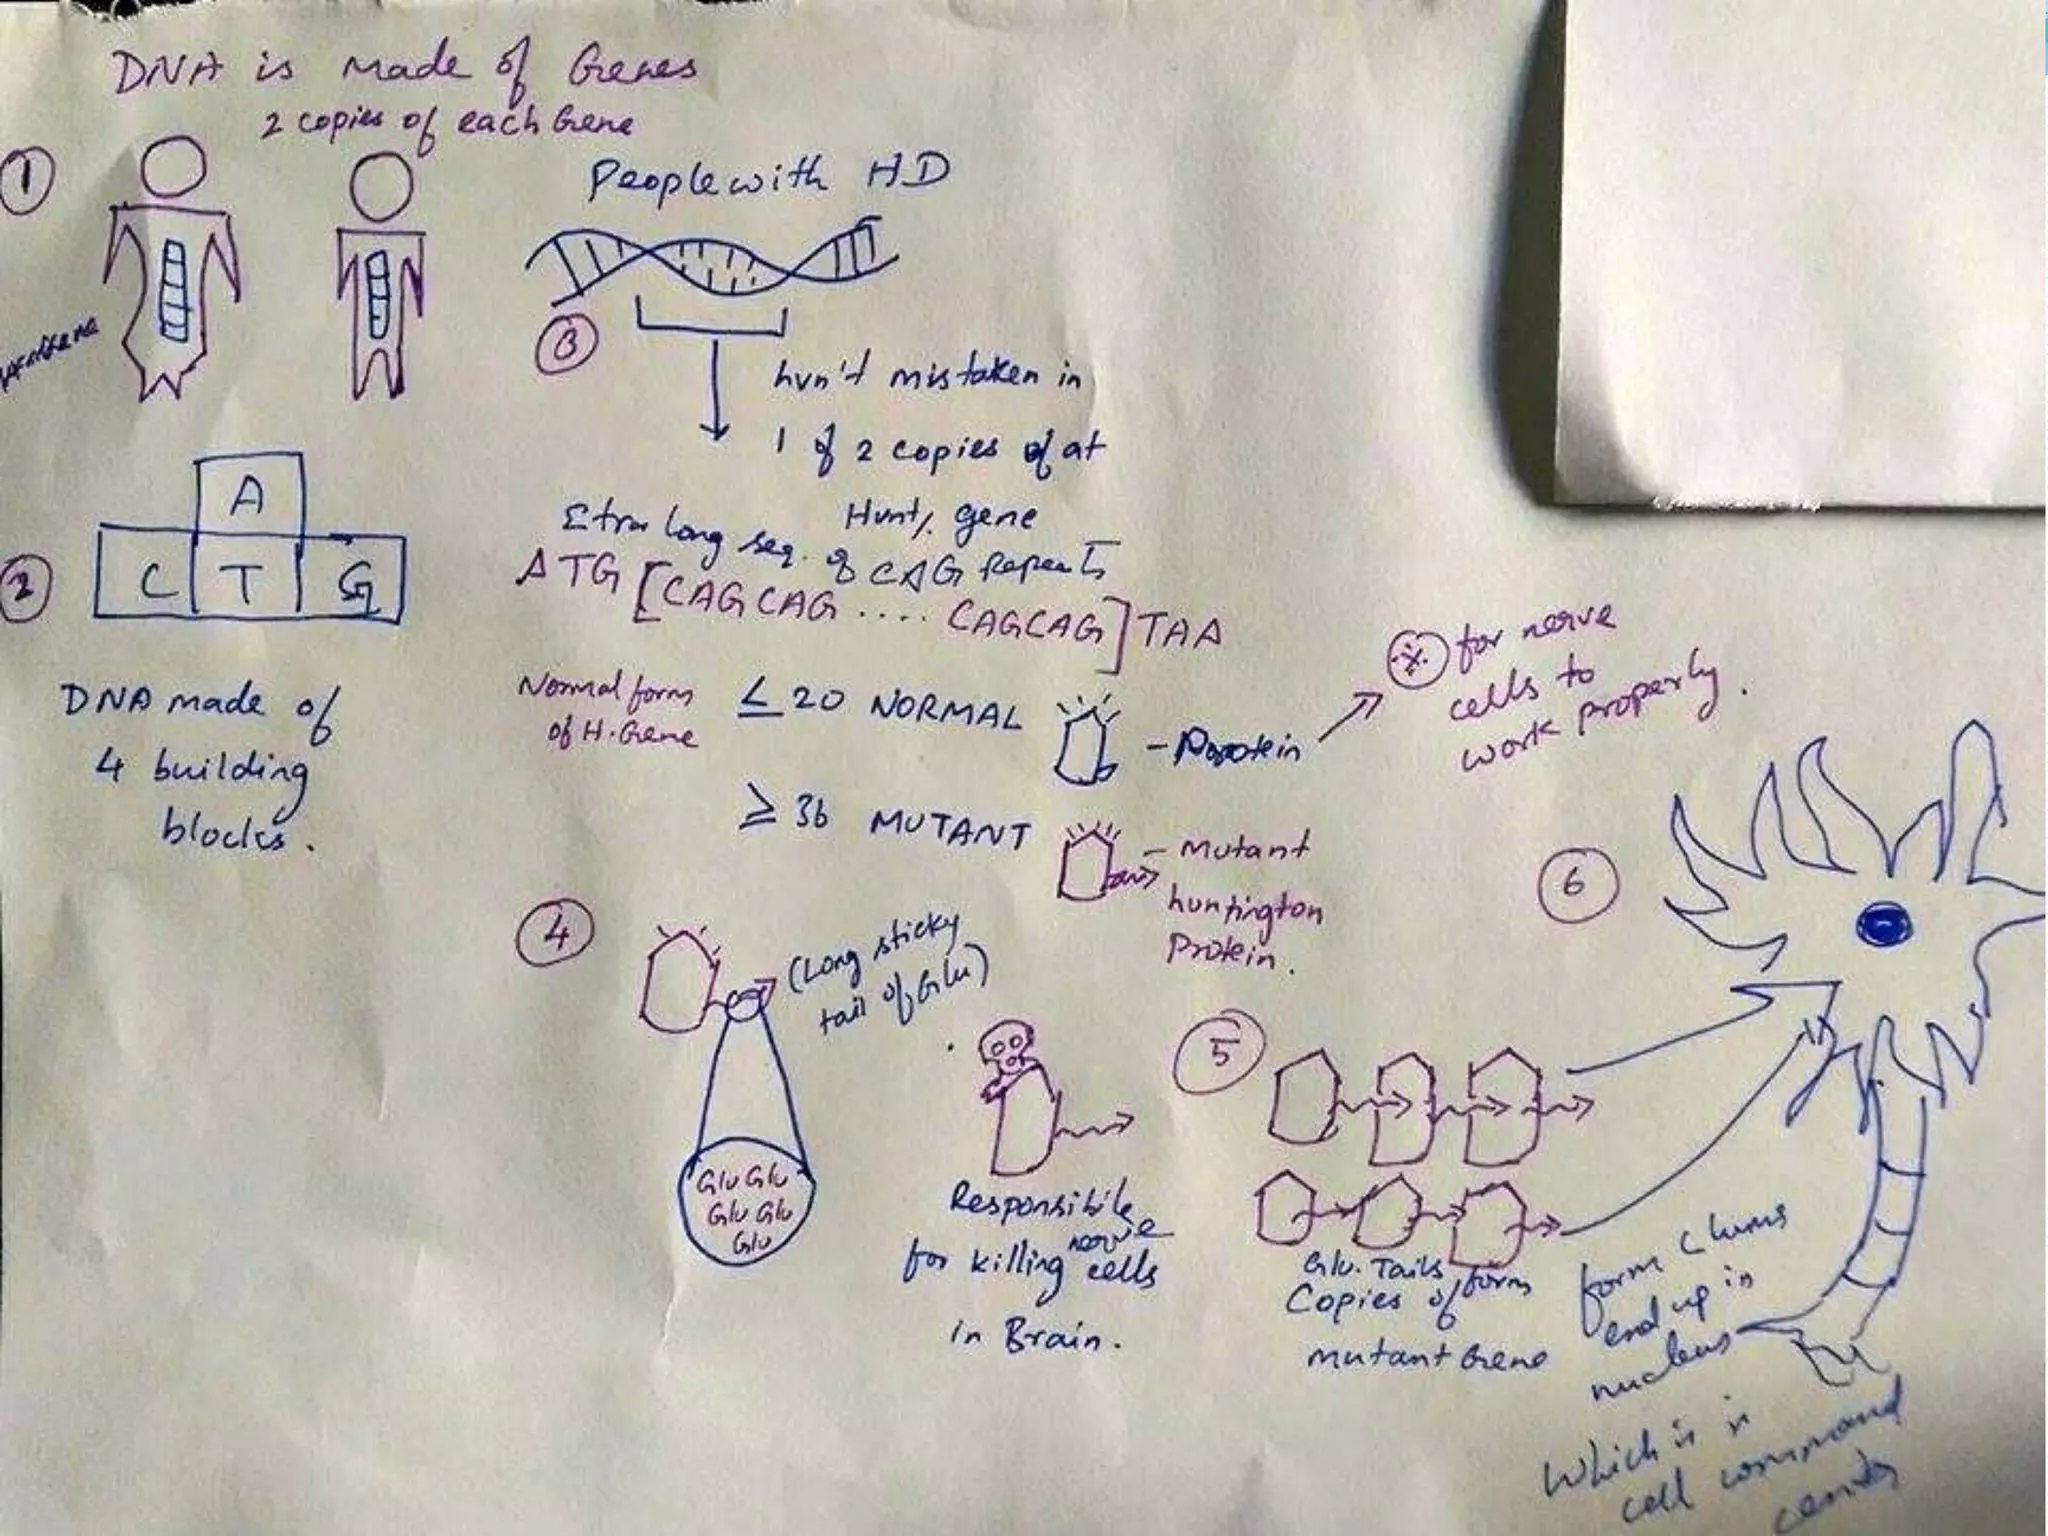 DNA is made of Genes
2 copies of each Gene
1
People with HD
3
hun't mistaken in
1 of 2 copies of at
Hunt/. gene
Extra long seq. of CAG repeats
ATG [CAGCAG .... CAGCAG] TAA
2
A
C T G
DNA made of
4 building
blocks.
Normal form
of H. Gene
≤ 20 NORMAL
- Protein
for nerve
cells to
work properly.
≥ 36 MUTANT
- Mutant
huntington
Protein.
4
(Long sticky
tail of Glu)
Glu Glu
Glu Glu
Glu
Responsibile
for killing nerve cells
in Brain.
5
Glu. Tails form
Copies of
mutant Gene
6
form Clums
end up in
nucleus
Which is in
cell command
center